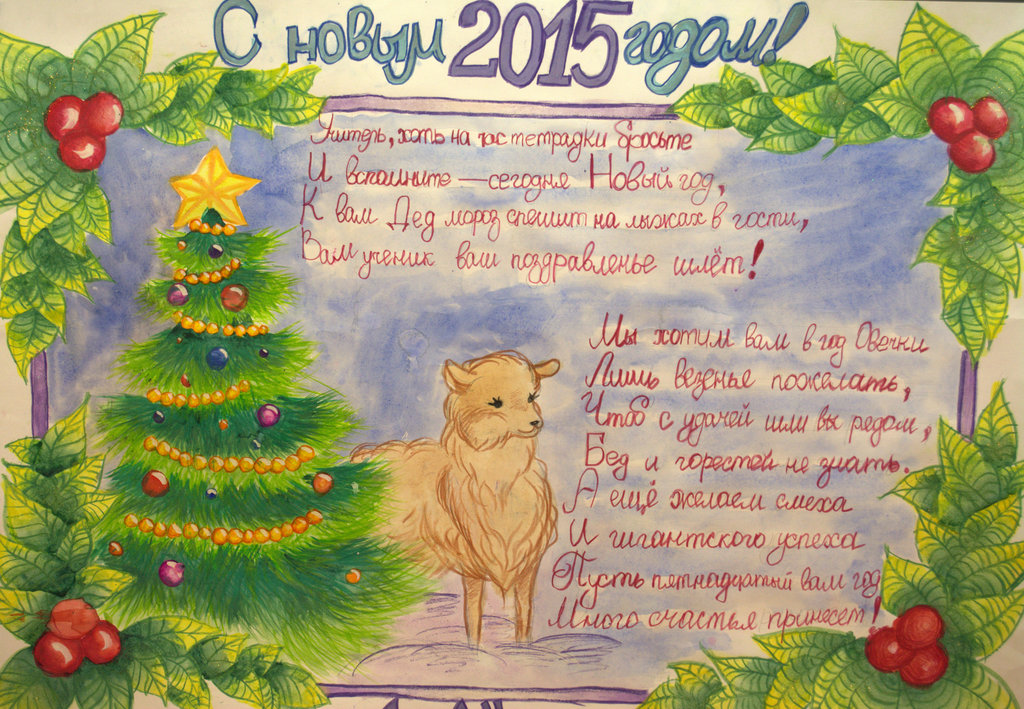 С новым 2015 годом!
Учитель, хоть на час тетрадки бросьте
И вспомните — сегодня Новый год,
К вам Дед мороз спешит на лыжах в гости,
Вам ученик ваш поздравленье шлёт!
Мы хотим вам в год Овечки
Лишь везенья пожелать,
Чтоб с удачей шли вы рядом,
Бед и горестей не знать.
А ещё желаем смеха
И гигантского успеха
Пусть пятнадцатый вам год
Много счастья принесёт!